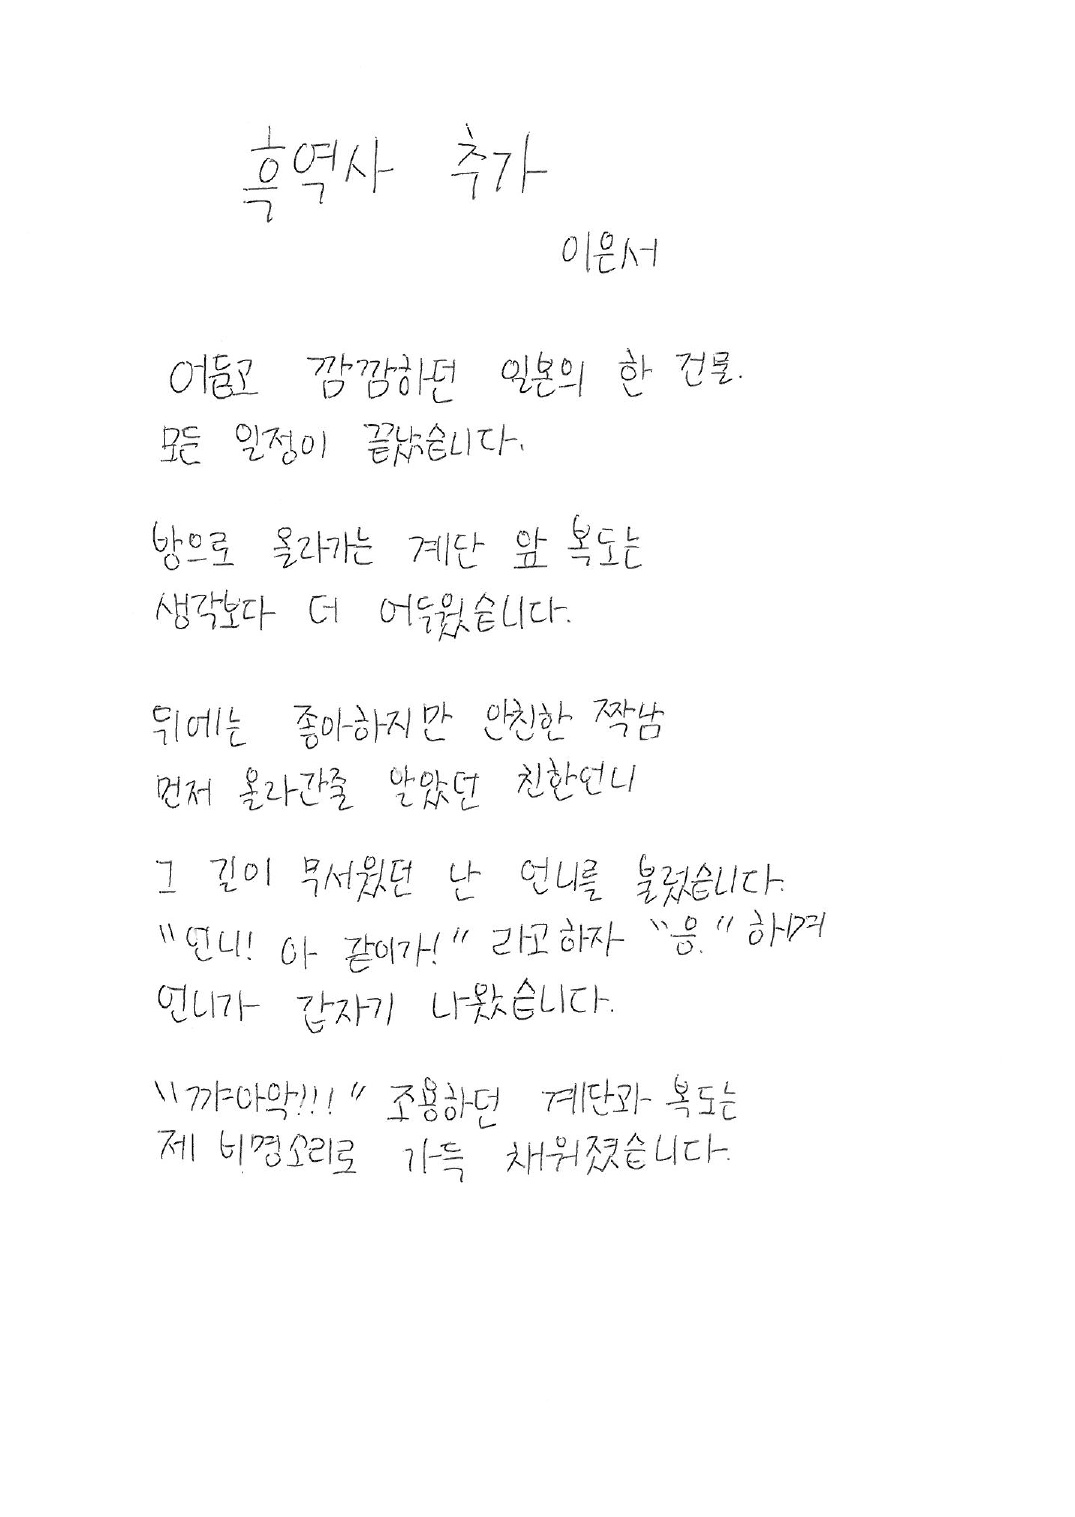 흑역사 추가
이은서
어둡고 깜깜하던 일본의 한 건물.
모든 일정이 끝났습니다.
방으로 올라가는 계단 앞 복도는
생각보다 더 어두웠습니다.
뒤에는 좋아하지만 안친한 짝남
먼저 올라간줄 알았던 친한언니
그 길이 무서웠던 난 언니를 불렀습니다.
"언니! 아 같이가!" 라고하자 "응." 하며
언니가 갑자기 나왔습니다.
"꺄아악!!!" 조용하던 계단과 복도는
제 비명소리로 가득 채워졌습니다.